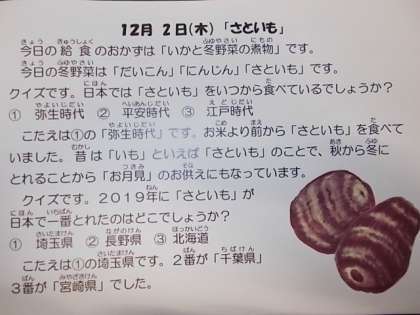 12月 2日(木) 「さといも」
今日の給食のおかずは「いかと冬野菜の煮物」です。
今日の冬野菜は「だいこん」「にんじん」「さといも」です。
クイズです。日本では「さといも」をいつから食べているでしょうか？
① 弥生時代 ② 平安時代 ③ 江戸時代
こたえは①の「弥生時代」です。お米より前から「さといも」を食べて
いました。昔は「いも」といえば「さといも」のことで、秋から冬に
とれることから「お月見」のお供えにもなっています。
クイズです。2019年に「さといも」が
日本で一番とれたのはどこでしょうか？
① 埼玉県 ② 長野県 ③ 北海道
こたえは①の埼玉県です。2番が「千葉県」
3番が「宮崎県」でした。